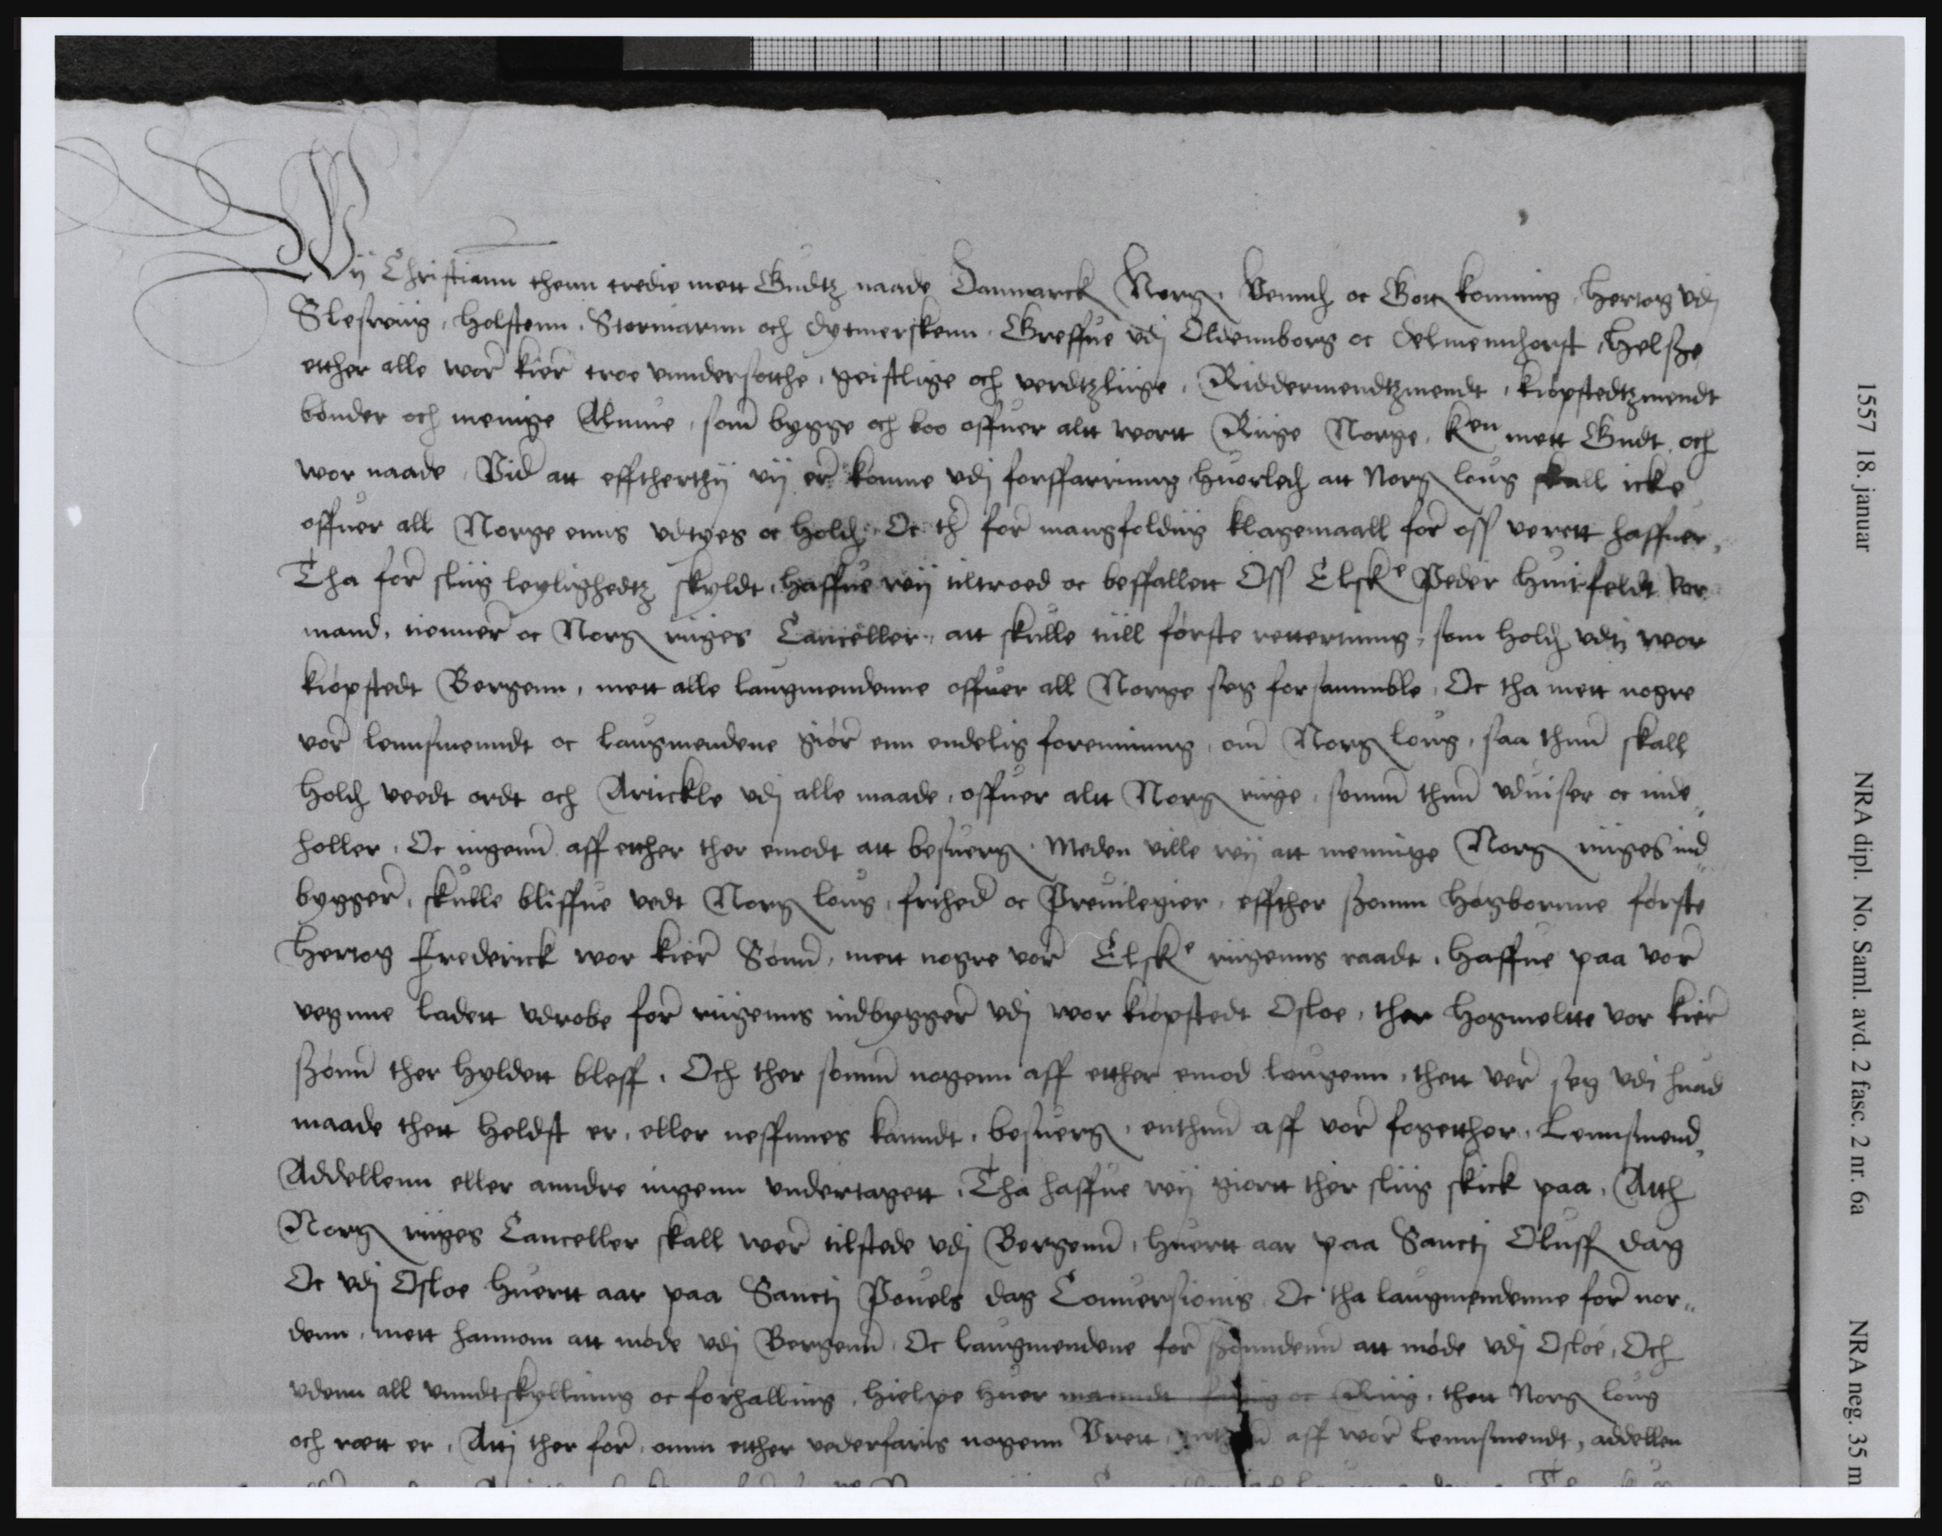 Wij Christiann thenn tredie mett Gudtz naade Danmarck Norg. Vennd oc Gott konning, Hertog vdj
Slesswiig, Holstenn, Stormarnn och Dytmerskenn, Greffue vdj Oldennborg oc Delmennhorst, Helsze
etther alle wor kier troe vnndersotthe, geistlige och verdtzliige, Riddermendtzmendt, kiøpstedtzmendt
bønder och menige Almue, som bygge och boo offuer altt wortt Riige Norge, Ken mett Gudt och
wor naade, Vid att efftherthij vij er komme vdj forffarrinng huorled att Norg loug skall icke
offuer all Norge enns vdtges oc hold, Oc th for mangfoldiig klagemaall for oss verett haffuer,
Tha for sliig leylighedtz skyldt, haffue wij tiltroed oc beffallett Oss Elske Peder Huitfeldt vor
mand, tienner oc Norg riiges Canceller, att skulle tiill første rettertinng, som hold vdtj wor
kiøpstedt Bergenn, mett alle laugmendenne offuer all Norge seg forsammble, Oc tha mett nogre
vor lennsmenndt oc laugmendene giør enn endelig forenninng, om Norg loug, saa thnn skall
hold veedt ordt och Artickle vdj alle maade, offuer altt Norg riige, somm thnn vduiser oc inde
holler, Oc ingenn aff etther ther emodt att besuerg, Meden ville wij att menninge Norg riiges ind
bygger, skulle bliffue vedt Norg loug, frihed oc Preuilegier, effther szomm høgbornne første
Hertog Frederick wor kier Sønn, mett nogre vor Elske riigenns raadt, haffue paa vor
vegnne ladett vdrobe for riigenns indbygger vdj wor kiøpstedt Osloe, ther hogmeltte vor kier
szønn ther hyldett bleff, Och ther somm nogenn aff etther emod lougenn, thett ver seg vdi huad
maade thett heldst er, eller neffnnes kanndt, besuerg, enthnn aff vor fogetther, Lennsmend,
Addellenn eller anndre ingenn vndertagett, Tha haffue wij giortt ther sliig skick paa, Atth
Norg riiges Canceller skall wer tilstede vdj Bergenn, huertt aar paa Sancti Oluff dag
Oc vdj Osloe huertt aar paa Sancti Pouels dag Conuersionis, Oc tha laugmendenne for nor
denn, mett hannom att møde vdj Bergenn, Oc laugmendene for szønndenn att møde vdj Osloe, Och
vdenn all vnndtskyllning oc forhalling, hielpe huer manndt fattig oc Riig, thett Norg loug
och rætt er, Atti ther for, omm etther vederfaris nogenn Vrett, enthnn aff wor lennsmendt, addellen
1557 18. januar
NRA dipl. No. Saml. avd. 2 fasc. 2 nr. 6a
NRA neg. 35 m